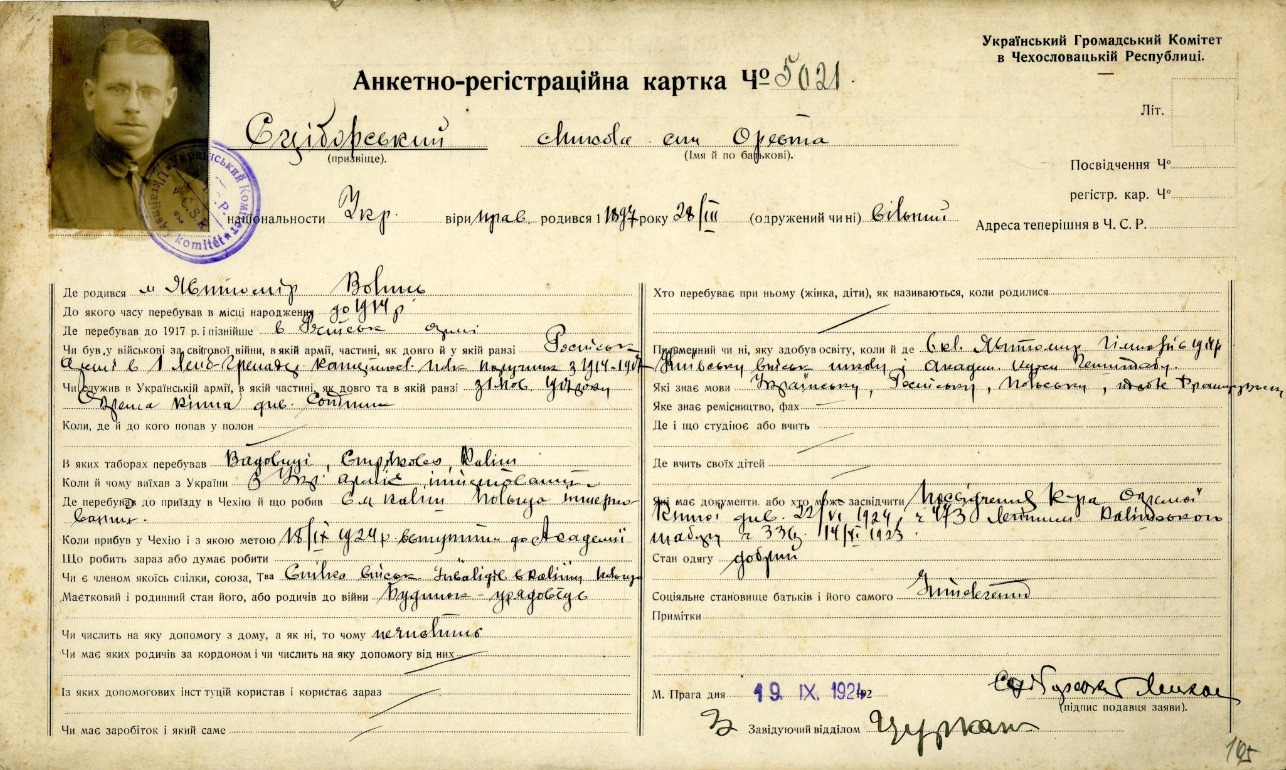 Український Громадський Комітет
в Чехословацькій Республиці.
Анкетно-регістраційна картка Ч° 5021.
Літ.
Сціборський Микола син Ореста
(призвіще). (Імя й по батькові).
Посвідчення Ч°
регістр. кар. Ч°
національности Укр. віри прав. родився 1 1897 року 28/III (одружений чи ні) вільний
Адреса теперішня в Ч. С. Р.
Український Комітет
Ч. С. Р.
komitét
Де родився м Житомір Волинь
До якого часу перебував в місці народження до 1914 р
Де перебував до 1917 р. і пізнійше в Російськ армії
Чи був у військові за світової війни, в якій армії, частині, як довго й у якій ранзі Російськ
Армії в 1 Лейб-Гренад полк поручник з 1914-1917
Чи служив в Українській армії, в якій частині, як довго та в якій ранзі
Окрема кінна див. Сотник
Коли, де й до кого попав у полон
В яких таборах перебував Вадовиці, Стрілково, Каліш
Коли й чому виїхав з України З Укр армією
Де перебував до приїзду в Чехію й що робив Ст. Каліш Польща інтерно
ваний.
Коли прибув у Чехію і з якою метою 18/IX 1924 р вступити до Академії
Що робить зараз або думає робити
Чи є членом якоїсь спілки, союза, Тва Спілка військ Інвалідів в Каліші
Маєтковий і родинний стан його, або родичів до війни Будинок - урядовець
Чи числить на яку допомогу з дому, а як ні, то чому нечислить
Чи має яких родичів за кордоном і чи числить на яку допомогу від них
Із яких допомогових інституцій користав і користає зараз
Чи має заробіток і який саме
Хто перебуває при ньому (жінка, діти), як називаються, коли родилися
Письменний чи ні, яку здобув освіту, коли й де 6 кл. Житомир Гімназії
Київську військ школу і Академ. курси
Які знає мови Українську, Російську, Польську, Французьку
Яке знає ремісництво, фах
Де і що студіює або вчить
Де вчить своїх дітей
Які має документи, або хто може засвідчити Посвідчення К-ра Окремої
Кінної див. 22/VI 1924 ч 473 Каліського
ч 336 14/VI 1923
Стан одягу добрий
Соціяльне становище батьків і його самого Інтелігент
Примітки
М. Прага дня 19. IX. 1924 192
(підпис подавця заяви).
Завідуючий відділом
145